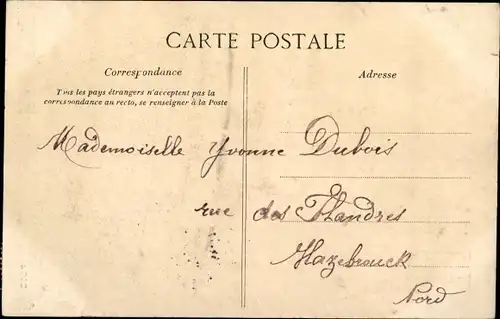 CARTE POSTALE
Correspondance
Adresse
Tous les pays étrangers n'acceptent pas la
correspondance au recto, se renseigner à la Poste
Mademoiselle Yvonne Dubois
rue des Flandres
Hazebrouck
Nord